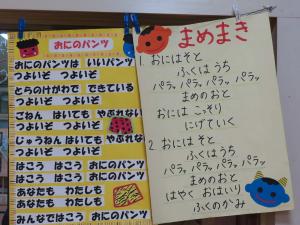 おにのパンツ
おにのパンツは いいパンツ
つよいぞ つよいぞ
とらのけがわで できている
つよいぞ つよいぞ
ごねん はいても やぶれない
つよいぞ つよいぞ
じゅうねん はいても やぶれない
つよいぞ つよいぞ
はこう はこう おにのパンツ
はこう はこう おにのパンツ
あなたも わたしも
あなたも わたしも
みんなではこう おにのパンツ
まめまき
1. おにはそと
ふくはうち
パラッ パラッ パラッ パラッ
まめのおと
おには こっそり
にげていく
2 おにはそと
ふくはうち
パラッ パラッ パラッ パラッ
まめのおと
はやく おはいり
ふくのかみ